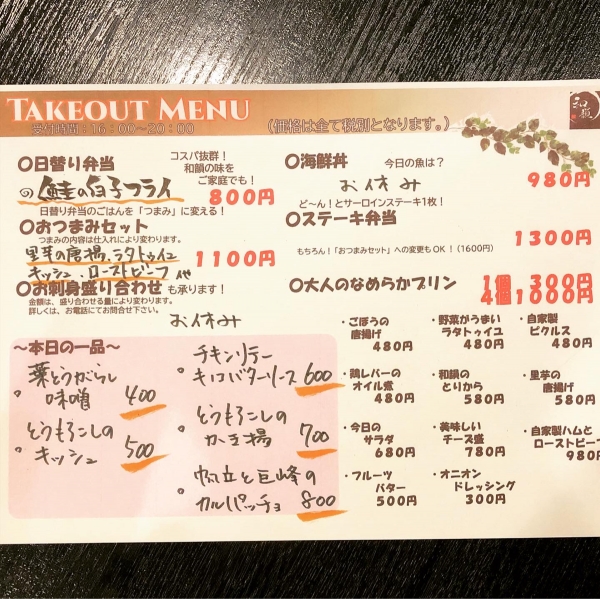 TAKEOUT MENU
受付時間:16:00~20:00
(価格は全て税別となります。)
和韻
○日替り弁当
コスパ抜群!
和韻の味を
ご家庭でも!
鮭の白子フライ
800円
日替り弁当のごはんを「つまみ」に変える!
○おつまみセット
つまみの内容は仕入れにより変わります。
里芋の唐揚、ラタトゥイユ
キッシュ、ローストビーフ 他
1100円
○お刺身盛り合わせも承ります!
金額は、盛り合わせる量により変わります。
詳しくは、お電話にてお問合せ下さい。
お休み
○海鮮丼
今日の魚は?
お休み
980円
ど~ん!とサーロインステーキ1枚!
○ステーキ弁当
1300円
もちろん!「おつまみセット」への変更もOK!(1600円)
○大人のなめらかプリン
1個 300円
4個1000円
~本日の一品~
葉とうがらし
味噌 400
とうもろこしの
キッシュ 500
チキンソテー
キノコバターソース 600
とうもろこしの
かき揚 700
帆立と巨峰の
カルパッチョ 800
・ごぼうの
唐揚げ
480円
・野菜がうまい
ラタトゥイユ
480円
・自家製
ピクルス
480円
・鶏レバーの
オイル煮
480円
・和韻の
とりから
580円
・里芋の
唐揚げ
580円
・今日の
サラダ
680円
・美味しい
チーズ盛
780円
・自家製ハムと
ローストビーフ
980円
・フルーツ
バター
500円
・オニオン
ドレッシング
300円